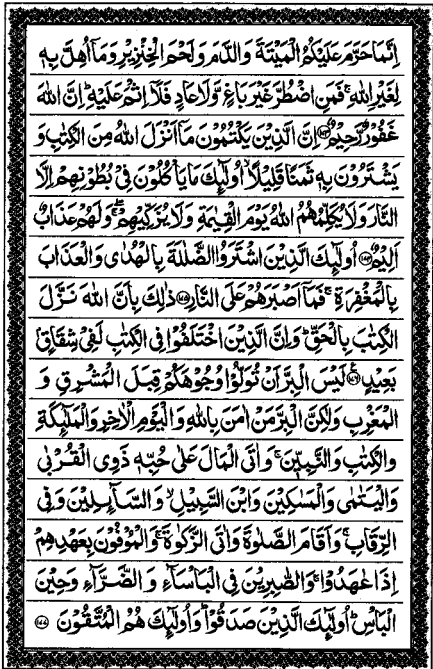 اِنَّمَا حَرَّمَ عَلَيْكُمُ الْمَيْتَةَ وَالدَّمَ وَلَحْمَ الْخِنْزِيْرِ وَمَاۤ اُهِلَّ بِهٖ
لِغَيْرِ اللّٰهِ ۚ فَمَنِ اضْطُرَّ غَيْرَ بَاغٍ وَّلَا عَادٍ فَلَاۤ اِثْمَ عَلَيْهِ ؕ اِنَّ اللّٰهَ
غَفُوْرٌ رَّحِيْمٌ ﴿۱۷۳﴾ اِنَّ الَّذِيْنَ يَكْتُمُوْنَ مَاۤ اَنْزَلَ اللّٰهُ مِنَ الْكِتٰبِ وَ
يَشْتَرُوْنَ بِهٖ ثَمَنًا قَلِيْلًا ۙ اُولٰٓئِكَ مَا يَاْكُلُوْنَ فِيْ بُطُوْنِهِمْ اِلَّا
النَّارَ وَلَا يُكَلِّمُهُمُ اللّٰهُ يَوْمَ الْقِيٰمَةِ وَلَا يُزَكِّيْهِمْ ۖۚ وَلَهُمْ عَذَابٌ
اَلِيْمٌ ﴿۱۷۴﴾ اُولٰٓئِكَ الَّذِيْنَ اشْتَرَوُا الضَّلٰلَةَ بِالْهُدٰى وَالْعَذَابَ
بِالْمَغْفِرَةِ ۚ فَمَاۤ اَصْبَرَهُمْ عَلَى النَّارِ ﴿۱۷۵﴾ ذٰلِكَ بِاَنَّ اللّٰهَ نَزَّلَ
الْكِتٰبَ بِالْحَقِّ ؕ وَاِنَّ الَّذِيْنَ اخْتَلَفُوْا فِي الْكِتٰبِ لَفِيْ شِقَاقٍۭ
بَعِيْدٍ ﴿۱۷۶﴾ لَيْسَ الْبِرَّ اَنْ تُوَلُّوْا وُجُوْهَكُمْ قِبَلَ الْمَشْرِقِ وَ
الْمَغْرِبِ وَلٰكِنَّ الْبِرَّ مَنْ اٰمَنَ بِاللّٰهِ وَالْيَوْمِ الْاٰخِرِ وَالْمَلٰٓئِكَةِ
وَالْكِتٰبِ وَالنَّبِيّٖنَ ۚ وَاٰتَى الْمَالَ عَلٰى حُبِّهٖ ذَوِي الْقُرْبٰى
وَالْيَتٰمٰى وَالْمَسٰكِيْنَ وَابْنَ السَّبِيْلِ ۙ وَالسَّآئِلِيْنَ وَفِي
الرِّقَابِ ۚ وَاَقَامَ الصَّلٰوةَ وَاٰتَى الزَّكٰوةَ ۚ وَالْمُوْفُوْنَ بِعَهْدِهِمْ
اِذَا عٰهَدُوْا ۚ وَالصّٰبِرِيْنَ فِي الْبَاْسَآءِ وَالضَّرَّآءِ وَحِيْنَ
الْبَاْسِ ؕ اُولٰٓئِكَ الَّذِيْنَ صَدَقُوْا ؕ وَاُولٰٓئِكَ هُمُ الْمُتَّقُوْنَ ﴿۱۷۷﴾